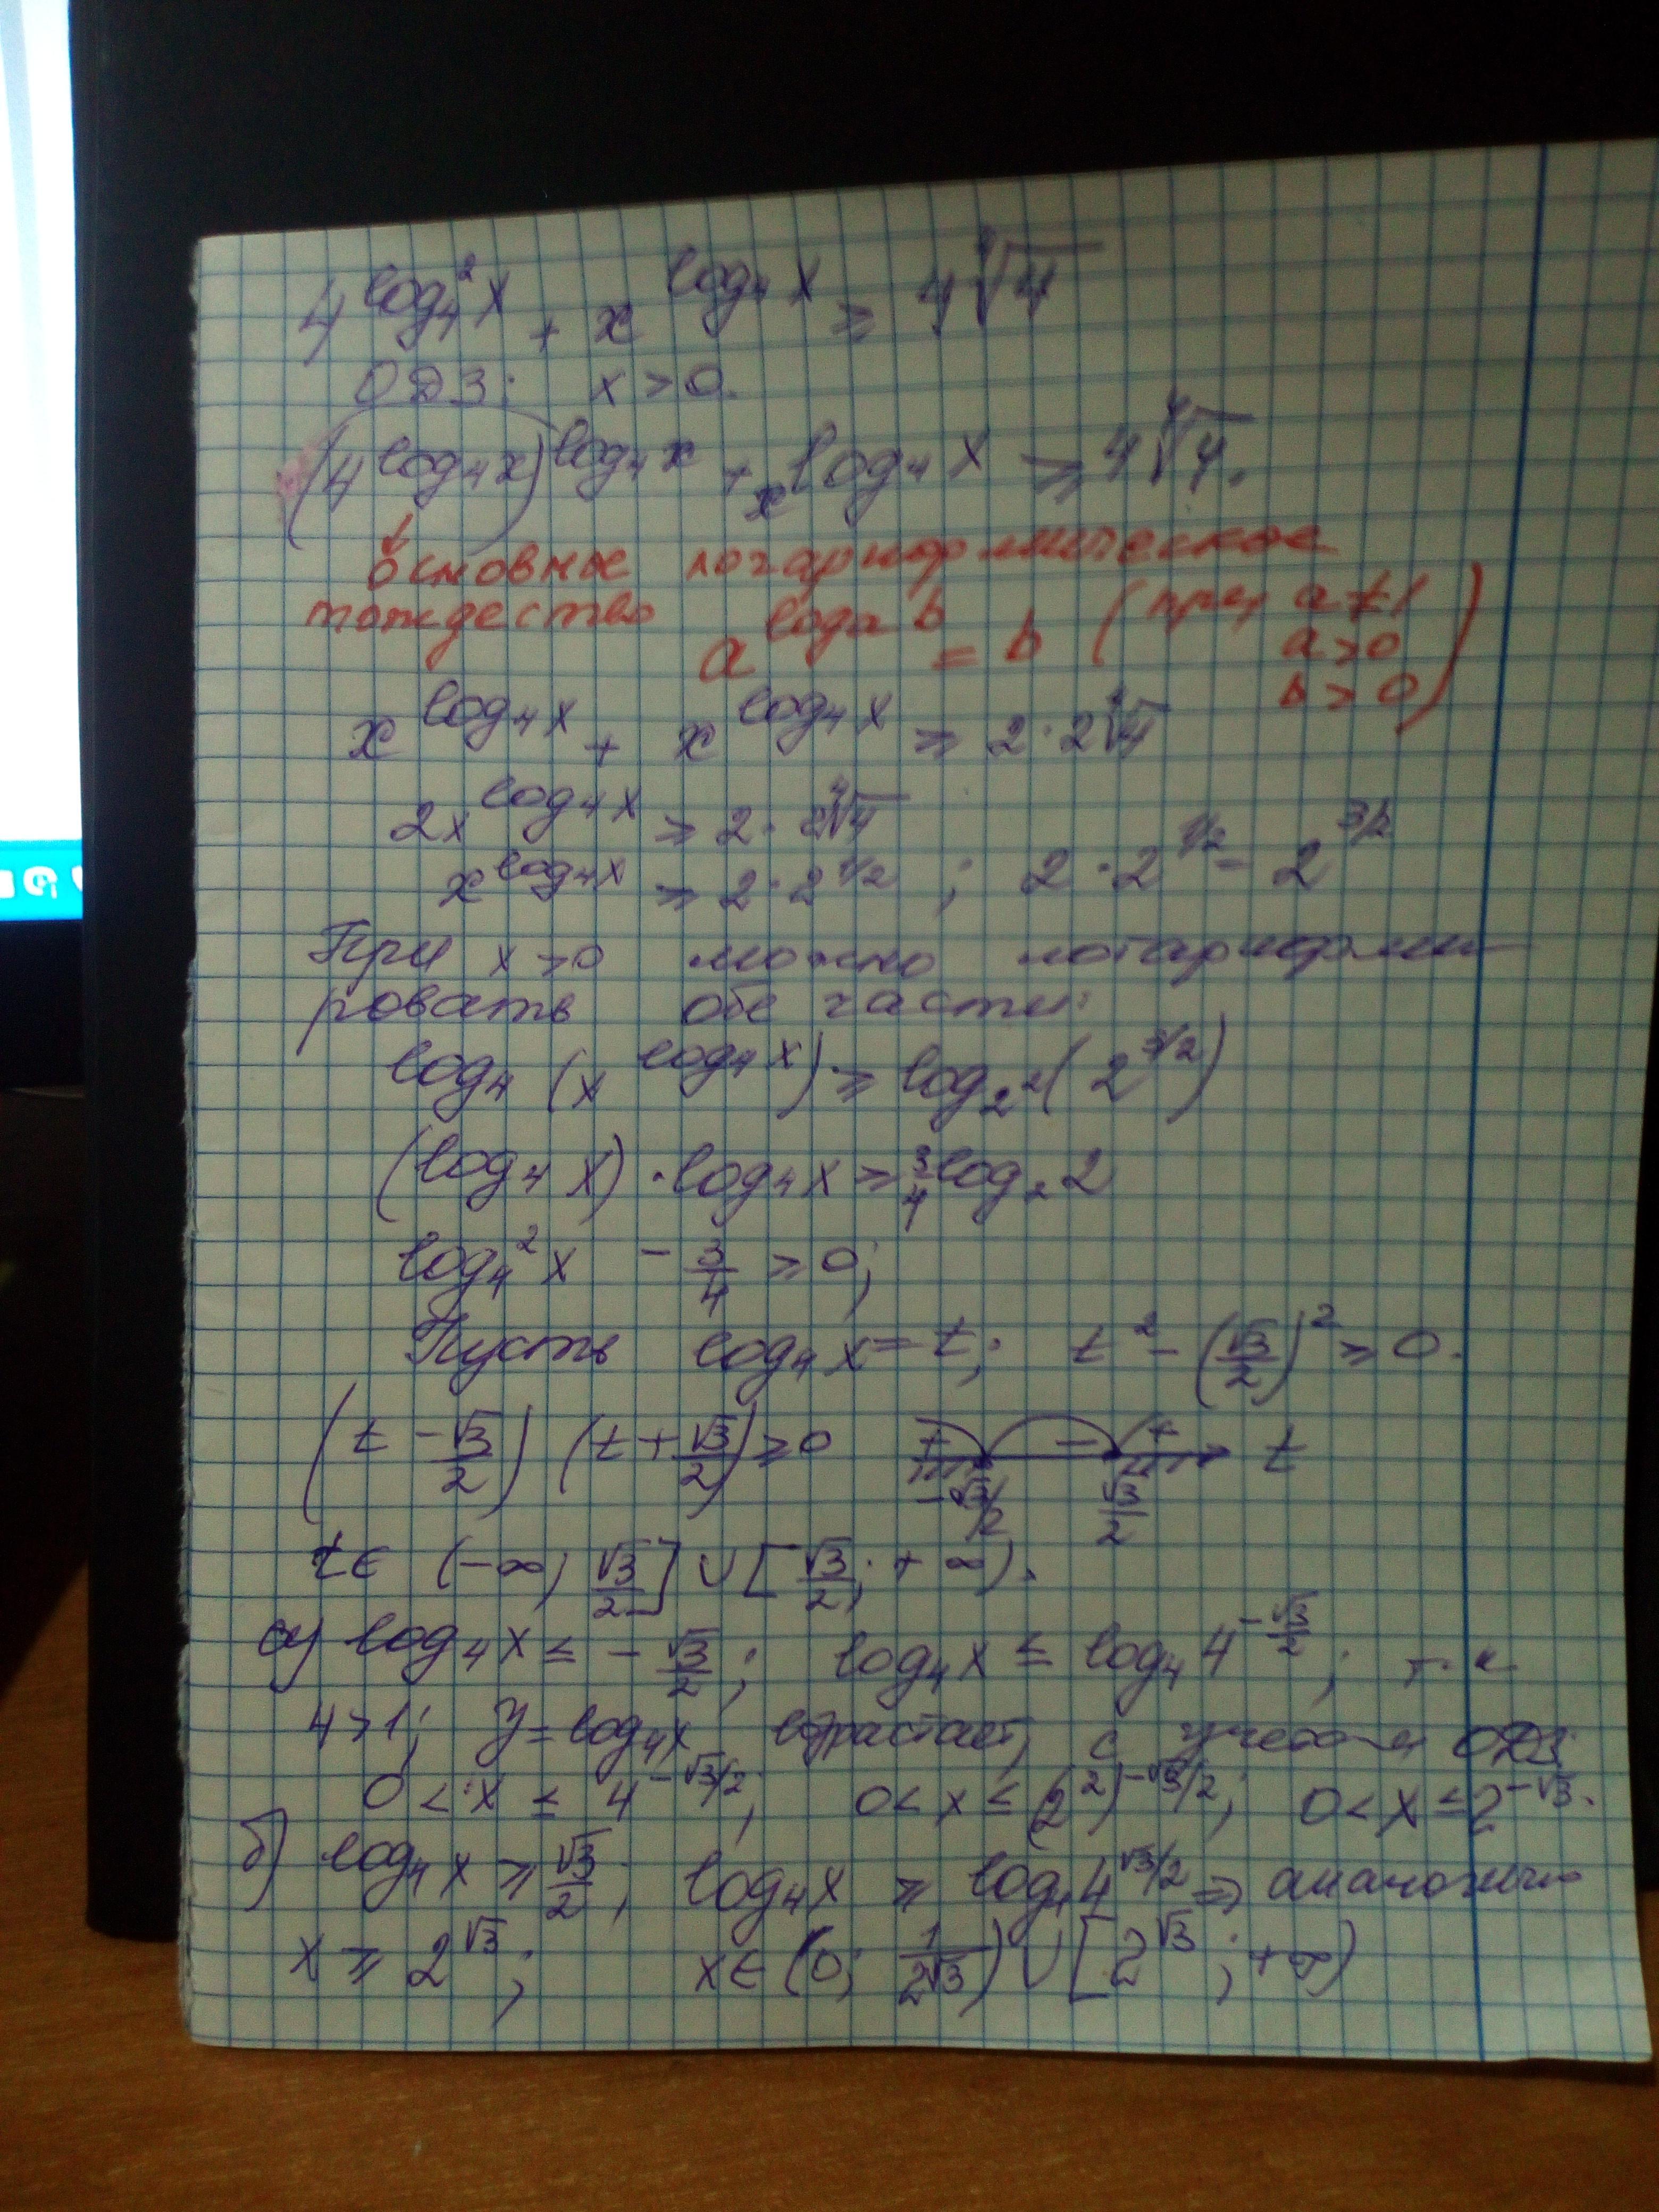 4^{log₄² x} + x^{log₄ x} ≥ 4∜4
ОДЗ: x > 0.
(4^{log₄ x})^{log₄ x} + x^{log₄ x} ≥ 4∜4.
↓
основное логарифмическое
тождество a^{logₐ b} = b (при a ≠ 1
a > 0
b > 0)
x^{log₄ x} + x^{log₄ x} ≥ 2·2∜4
2x^{log₄ x} ≥ 2·2∜4
x^{log₄ x} ≥ 2·2^{1/2} ; 2·2^{1/2} = 2^{3/2}
При x > 0 можно логарифми
ровать обе части:
log₄ (x^{log₄ x}) ≥ log_{2²} (2^{3/2})
(log₄ x)·log₄ x ≥ 3/4 log₂ 2
log₄² x - 3/4 ≥ 0;
Пусть log₄ x = t; t² - (√3/2)² ≥ 0.
(t - √3/2) (t + √3/2) ≥ 0 + - + t
-√3/2 √3/2
t ∈ (-∞; √3/2] ∪ [√3/2; +∞).
а) log₄ x ≤ -√3/2; log₄ x ≤ log₄ 4^{-√3/2}; т.к
4 > 1; y = log₄ x возрастает, с учетом ОДЗ:
0 < x ≤ 4^{-√3/2}; 0 < x ≤ (2²)^{-√3/2}; 0 < x ≤ 2^{-√3}.
б) log₄ x ≥ √3/2; log₄ x ≥ log₄ 4^{√3/2} ⇒ аналогично
x ≥ 2^{√3}; x ∈ (0; 1/2^{√3}) ∪ [2^{√3}; +∞)